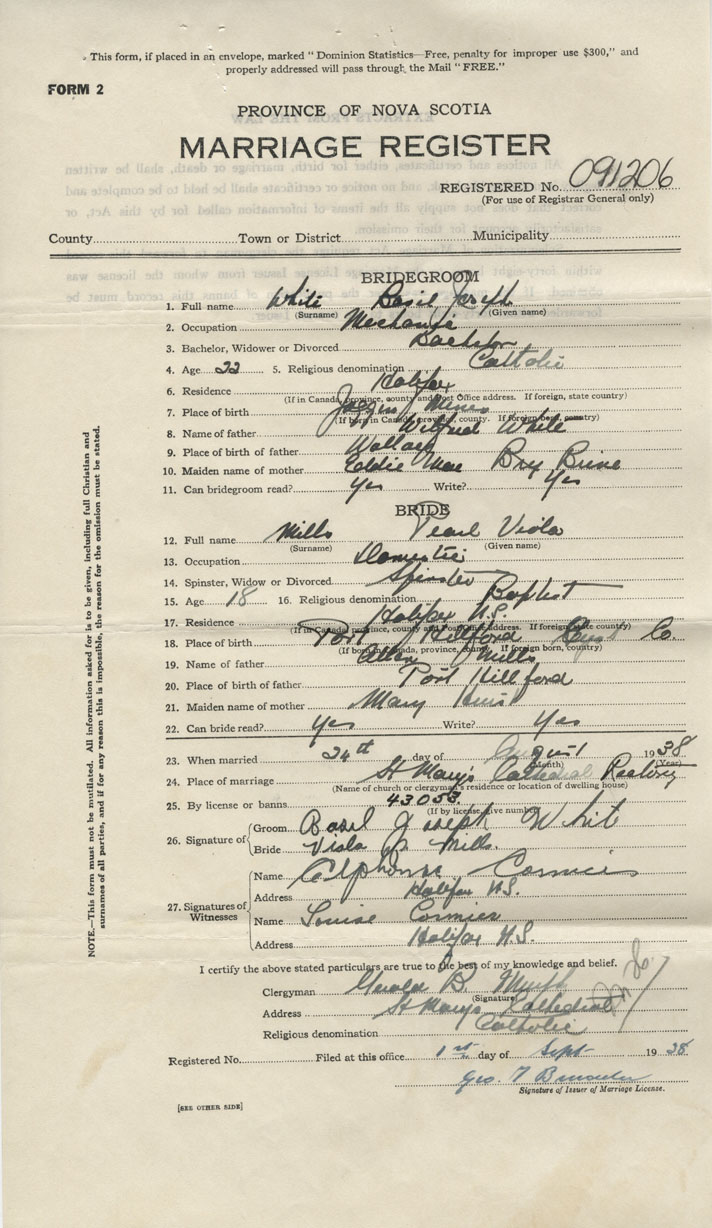 This form, if placed in an envelope, marked "Dominion Statistics—Free, penalty for improper use $300," and
properly addressed will pass through the Mail "FREE."
FORM 2
PROVINCE OF NOVA SCOTIA
MARRIAGE REGISTER
REGISTERED No. 091206
(For use of Registrar General only)
County Town or District Municipality
BRIDEGROOM
1. Full name White Basil Joseph
(Surname) (Given name)
2. Occupation Mechanic
3. Bachelor, Widower or Divorced Bachelor
4. Age 22 5. Religious denomination Catholic
6. Residence Halifax
(If in Canada, province, county and Post Office address. If foreign, state country)
7. Place of birth Joggin Mines
(If born in Canada, province, county. If foreign born, country)
8. Name of father Wilfred White
9. Place of birth of father Wallace
10. Maiden name of mother Eddie Mae Brine
11. Can bridegroom read? Yes Write? Yes
BRIDE
12. Full name Mills Pearl Viola
(Surname) (Given name)
13. Occupation Domestic
14. Spinster, Widow or Divorced Spinster
15. Age 18 16. Religious denomination Baptist
17. Residence Halifax N.S.
(If in Canada, province, county and Post Office address. If foreign, state country)
18. Place of birth Port Hillford Co.
(If born in Canada, province, county. If foreign born, country)
19. Name of father Mills
20. Place of birth of father Port Hillford
21. Maiden name of mother Mary
22. Can bride read? Yes Write? Yes
23. When married 24th day of August 1938
(Month) (Year)
24. Place of marriage St Mary's Cathedral Rectory
(Name of church or clergyman's residence or location of dwelling house)
25. By license or banns 43053
(If by license, give number)
26. Signature of
Groom Basil Joseph Whit
Bride Viola P. Mills.
27. Signatures of Witnesses
Name Alphonse Cormier
Address Halifax N.S.
Name Louise Cormier
Address Halifax N.S.
I certify the above stated particulars are true to the best of my knowledge and belief.
Clergyman Gerald B. Murphy
(Signature)
Address St Mary's Cathedral
Religious denomination Catholic
Registered No. Filed at this office 1st day of Sept 1938
Geo. T
Signature of Issuer of Marriage License.
[SEE OTHER SIDE]
NOTE.—This form must not be mutilated. All information asked for is to be given, including full Christian and
surnames of all parties, and if for any reason this is impossible, the reason for the omission must be stated.